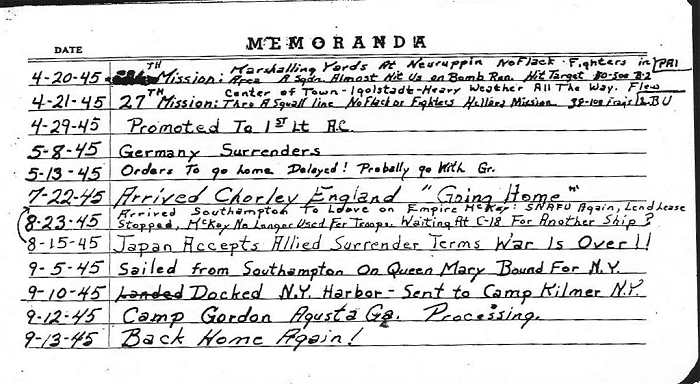 MEMORANDA
DATE
TH Marshalling Yards At Neuruppin No Flack - Fighters in PRI
4-20-45 Mission: Area A Sqdn. Almost Hit Us on Bomb Run. Hit Target
TH Center of Town - Igolstadt - Heavy Weather All The Way. Flew
4-21-45 27 Mission: Thru A Squall line No Flack or Fighters Mission
4-29-45 Promoted To 1st Lt A.C.
5-8-45 Germany Surrenders
5-13-45 Orders To go home Delayed! Probally go With Gr.
7-22-45 Arrived Chorley England "Going Home"
Arrived Southampton To Leave on Empire McKay: SNAFU Again, Lend Lease
8-23-45 Stopped, McKay No Longer Used For Troops Waiting At C-18 For Another Ship?
8-15-45 Japan Accepts Allied Surrender Terms War Is Over!!
9-5-45 Sailed from Southampton On Queen Mary Bound For N.Y.
9-10-45 Landed Docked N.Y. Harbor - Sent to Camp Kilmer N.Y.
9-12-45 Camp Gordon Agusta Ga. Processing.
9-13-45 Back Home Again!